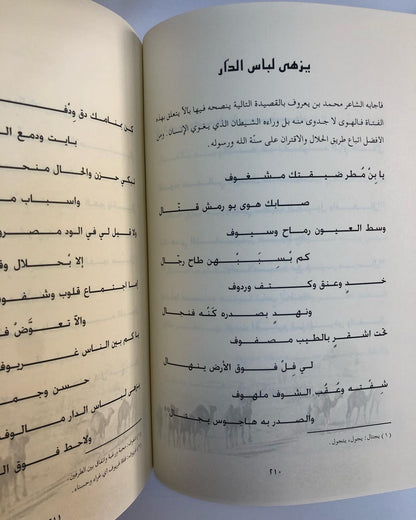 يزهى لباس الدار
فاجابه الشاعر محمد بن يعروف بالقصيدة التالية ينصحه فيها بألا يتعلق بهذه
الفتاة فالهوى لا جدوى منه بل وراءه الشيطان الذي يغوي الإنسان. ومن
الأفضل اتباع طريق الحلال والاقتران على سنّة الله ورسوله.
يا بِنْ مْطر ضيقتك مشغوف
صابك هوى بو رمش قتال
وسط العيون رماح وسيوف
كم يْسبّبهن طاح رجّال
خدٍ وعنق وكتف وردوف
ونهدٍ بصدره كنّه فنجال
تحت اشقرٍ بالطيب مصفوف
لي فِلّ فوق الأرض ينهال
شِفْته وعْقْب الشوف ملهوف
والصدر به هاجوس يجتال
(١) يجتال: يجول، يتجول.
٢١٠
كن بنامك دق ودْف
بايت ودمع ال
نبكي حزن والحال منح
واسباب م
ولا قبل لي في الود مصرو
إلا بْحلال وق
إما اجتماع قلوب وشفو
والّا تعوّضْ ف
يا كم بين الناس غريوف
حسن وجم
يزهى لباس الدار مالوف
ولاحظ فوق ال
٢١١